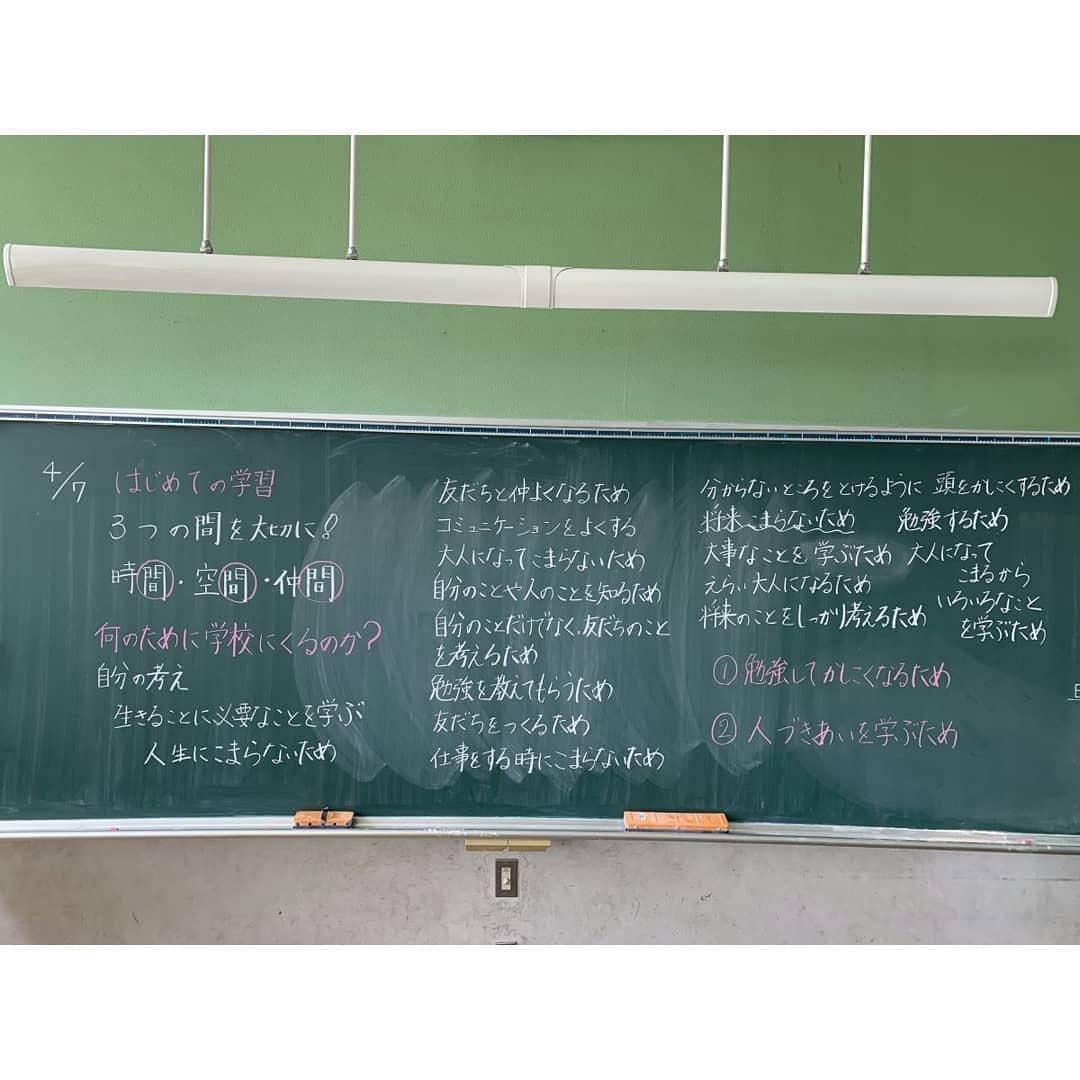 4/7 はじめての学習
3つの間を大切に!
時間・空間・仲間
何のために学校にくるのか?
自分の考え
生きることに必要なことを学ぶ
人生にこまらないため
友だちと仲よくなるため
コミュニケーションをよくする
大人になってこまらないため
自分のことや人のことを知るため
自分のことだけでなく、友だちのこと
を考えるため
勉強を教えてもらうため
友だちをつくるため
仕事をする時にこまらないため
分からないところをとけるように
将来こまらないため
大事なことを学ぶため
えらい大人になるため
将来のことをしっかり考えるため
頭をかしこくするため
勉強するため
大人になって
こまるから
いろいろなこと
を学ぶため
①勉強してかしこくなるため
②人づきあいを学ぶため